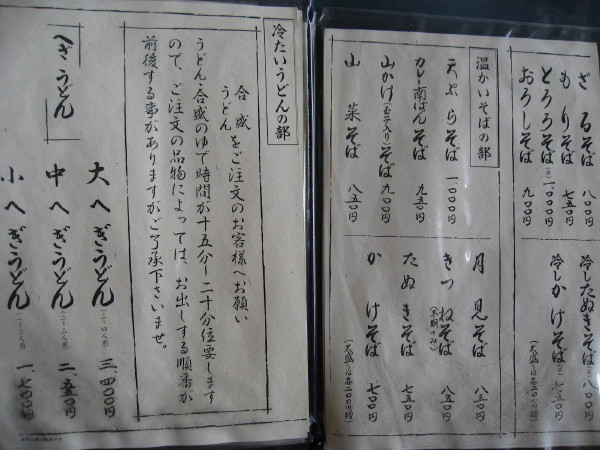 ざるそば 八〇〇円
もりそば 七五〇円
とろろそば 一、〇〇〇円
おろしそば 九〇〇円
冷したぬきそば 八〇〇円
冷しかけそば 七五〇円
(大盛りは各二〇〇円増)
温かいそばの部
天ぷらそば 一、〇〇〇円
カレー南ばんそば 九五〇円
山かけ(玉子入り)そば 九〇〇円
山菜そば 八五〇円
月見そば 八五〇円
きつねそば 八五〇円
(冬期のみ)
たぬきそば 七五〇円
かけそば 七〇〇円
(大盛りは各二〇〇円増)
冷たいうどんの部
合盛をご注文のお客様へお願い
うどん
うどん・合盛のゆで時間が十五分〜二十分位要します
ので、ご注文の品物によっては、お出しする順番が
前後する事がありますがご了承下さいませ。
へぎうどん
大へぎうどん(三〜四人前) 三、四〇〇円
中へぎうどん(二〜三人前) 二、五五〇円
小へぎうどん(一〜二人前) 一、七〇〇円